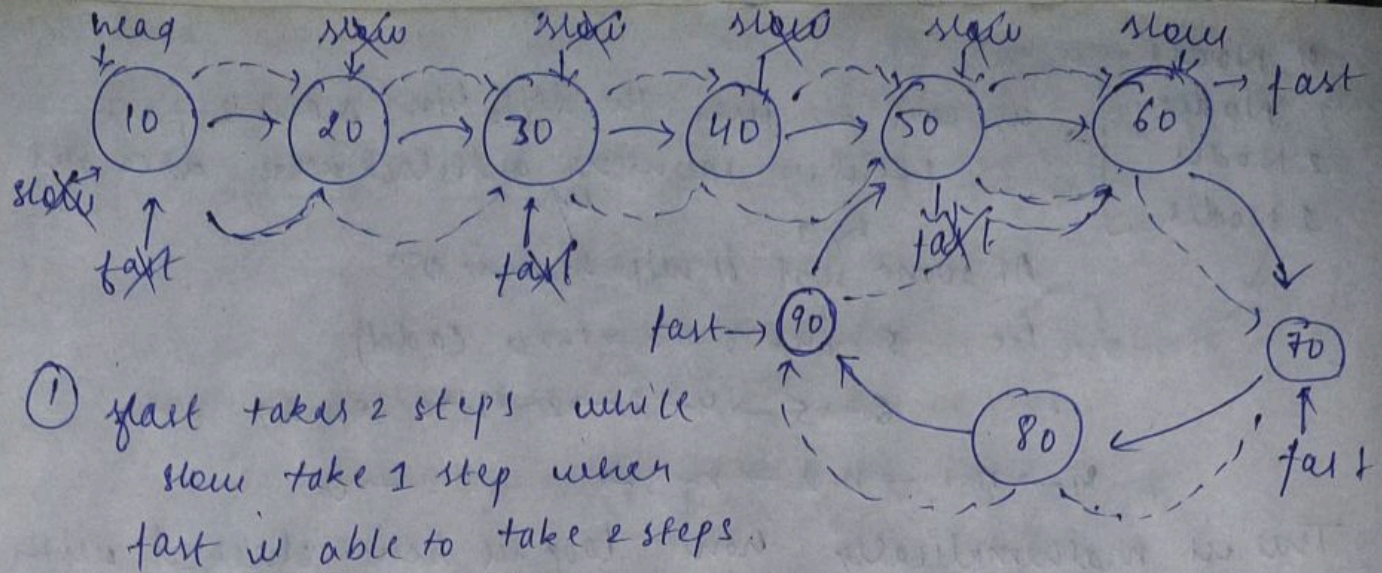 head slow slow slow slow slow
10 20 30 40 50 60 → fast
slow
fast fast fast
fast→ 90 70
① fast takes 2 steps while 80 fast
slow take 1 step when
fast is able to take 2 steps.